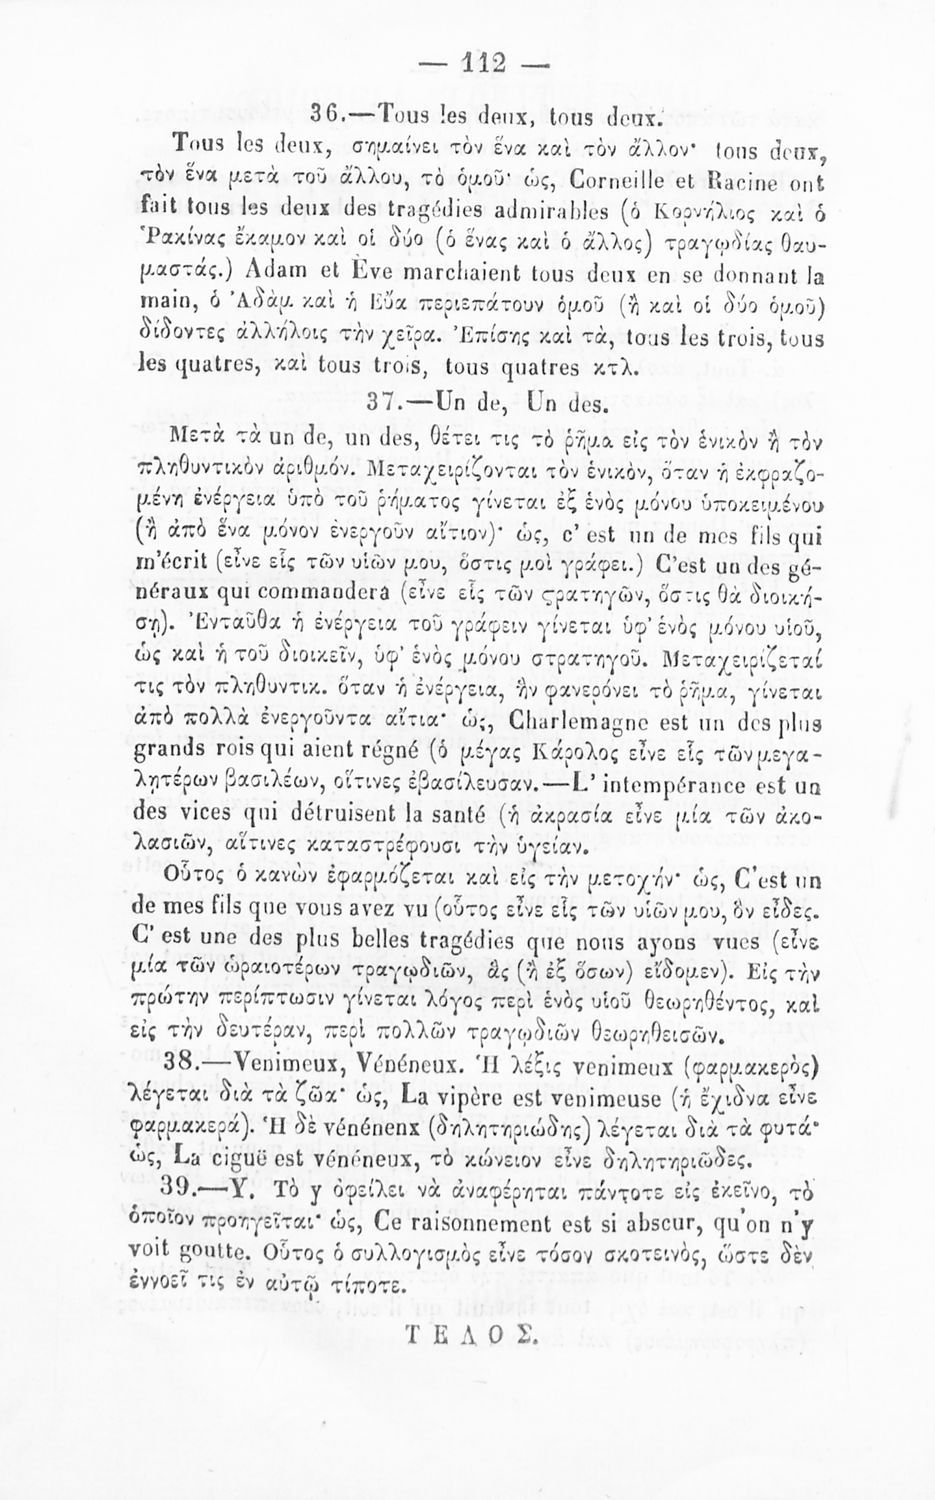 — 112 —
36.—Tous les deux, tous deux.
Tous les deux, σημαίνει τὸν ἕνα καὶ τὸν ἄλλον· tous deux,
τὸν ἕνα μετὰ τοῦ ἄλλου, τὸ ὁμοῦ· ὡς, Corneille et Racine ont
fait tous les deux des tragédies admirables (ὁ Κορνήλιος καὶ ὁ
Ῥακίνας ἔκαμον καὶ οἱ δύο (ὁ ἕνας καὶ ὁ ἄλλος) τραγῳδίας θαυ-
μαστάς.) Adam et Ève marchaient tous deux en se donnant la
main, ὁ Ἀδὰμ καὶ ἡ Εὔα περιεπάτουν ὁμοῦ (ἢ καὶ οἱ δύο ὁμοῦ)
δίδοντες ἀλλήλοις τὴν χεῖρα. Ἐπίσης καὶ τὰ, tous les trois, tous
les quatres, καὶ tous trois, tous quatres κτλ.
37.—Un de, Un des.
Μετὰ τὰ un de, un des, θέτει τις τὸ ῥῆμα εἰς τὸν ἑνικὸν ἢ τὸν
πληθυντικὸν ἀριθμόν. Μεταχειρίζονται τὸν ἑνικὸν, ὅταν ἡ ἐκφραζο-
μένη ἐνέργεια ὑπὸ τοῦ ῥήματος γίνεται ἐξ ἑνὸς μόνου ὑποκειμένου
(ἢ ἀπὸ ἕνα μόνον ἐνεργοῦν αἴτιον)· ὡς, c' est un de mes fils qui
m'écrit (εἶνε εἷς τῶν υἱῶν μου, ὅστις μοὶ γράφει.) C'est un des gé-
néraux qui commandera (εἶνε εἷς τῶν ϛρατηγῶν, ὅστις θὰ διοική-
σῃ). Ἐνταῦθα ἡ ἐνέργεια τοῦ γράφειν γίνεται ὑφ' ἑνὸς μόνου υἱοῦ,
ὡς καὶ ἡ τοῦ διοικεῖν, ὑφ' ἑνὸς μόνου στρατηγοῦ. Μεταχειρίζεταί
τις τὸν πληθυντικ. ὅταν ἡ ἐνέργεια, ἣν φανερόνει τὸ ῥῆμα, γίνεται
ἀπὸ πολλὰ ἐνεργοῦντα αἴτια· ὡς, Charlemagne est un des plus
grands rois qui aient régné (ὁ μέγας Κάρολος εἶνε εἷς τῶν μεγα-
λητέρων βασιλέων, οἵτινες ἐβασίλευσαν.—L' intempérance est un
des vices qui détruisent la santé (ἡ ἀκρασία εἶνε μία τῶν ἀκο-
λασιῶν, αἵτινες καταστρέφουσι τὴν ὑγείαν.
Οὗτος ὁ κανὼν ἐφαρμόζεται καὶ εἰς τὴν μετοχήν· ὡς, C'est un
de mes fils que vous avez vu (οὗτος εἶνε εἷς τῶν υἱῶν μου, ὃν εἶδες.
C' est une des plus belles tragédies que nous ayons vues (εἶνε
μία τῶν ὡραιοτέρων τραγῳδιῶν, ἃς (ἢ ἐξ ὅσων) εἴδομεν). Εἰς τὴν
πρώτην περίπτωσιν γίνεται λόγος περὶ ἑνὸς υἱοῦ θεωρηθέντος, καὶ
εἰς τὴν δευτέραν, περὶ πολλῶν τραγῳδιῶν θεωρηθεισῶν.
38.—Venimeux, Vénéneux. Ἡ λέξις venimeux (φαρμακερὸς)
λέγεται διὰ τὰ ζῶα· ὡς, La vipère est venimeuse (ἡ ἔχιδνα εἶνε
φαρμακερά). Ἡ δὲ vénénenx (δηλητηριώδης) λέγεται διὰ τὰ φυτά·
ὡς, La ciguë est vénéneux, τὸ κώνειον εἶνε δηλητηριῶδες.
39.—Y. Τὸ y ὀφείλει νὰ ἀναφέρηται πάντοτε εἰς ἐκεῖνο, τὸ
ὁποῖον προηγεῖται· ὡς, Ce raisonnement est si abscur, qu'on n'y
voit goutte. Οὗτος ὁ συλλογισμὸς εἶνε τόσον σκοτεινὸς, ὥστε δὲν
ἐννοεῖ τις ἐν αὐτῷ τίποτε.
ΤΕΛΟΣ.